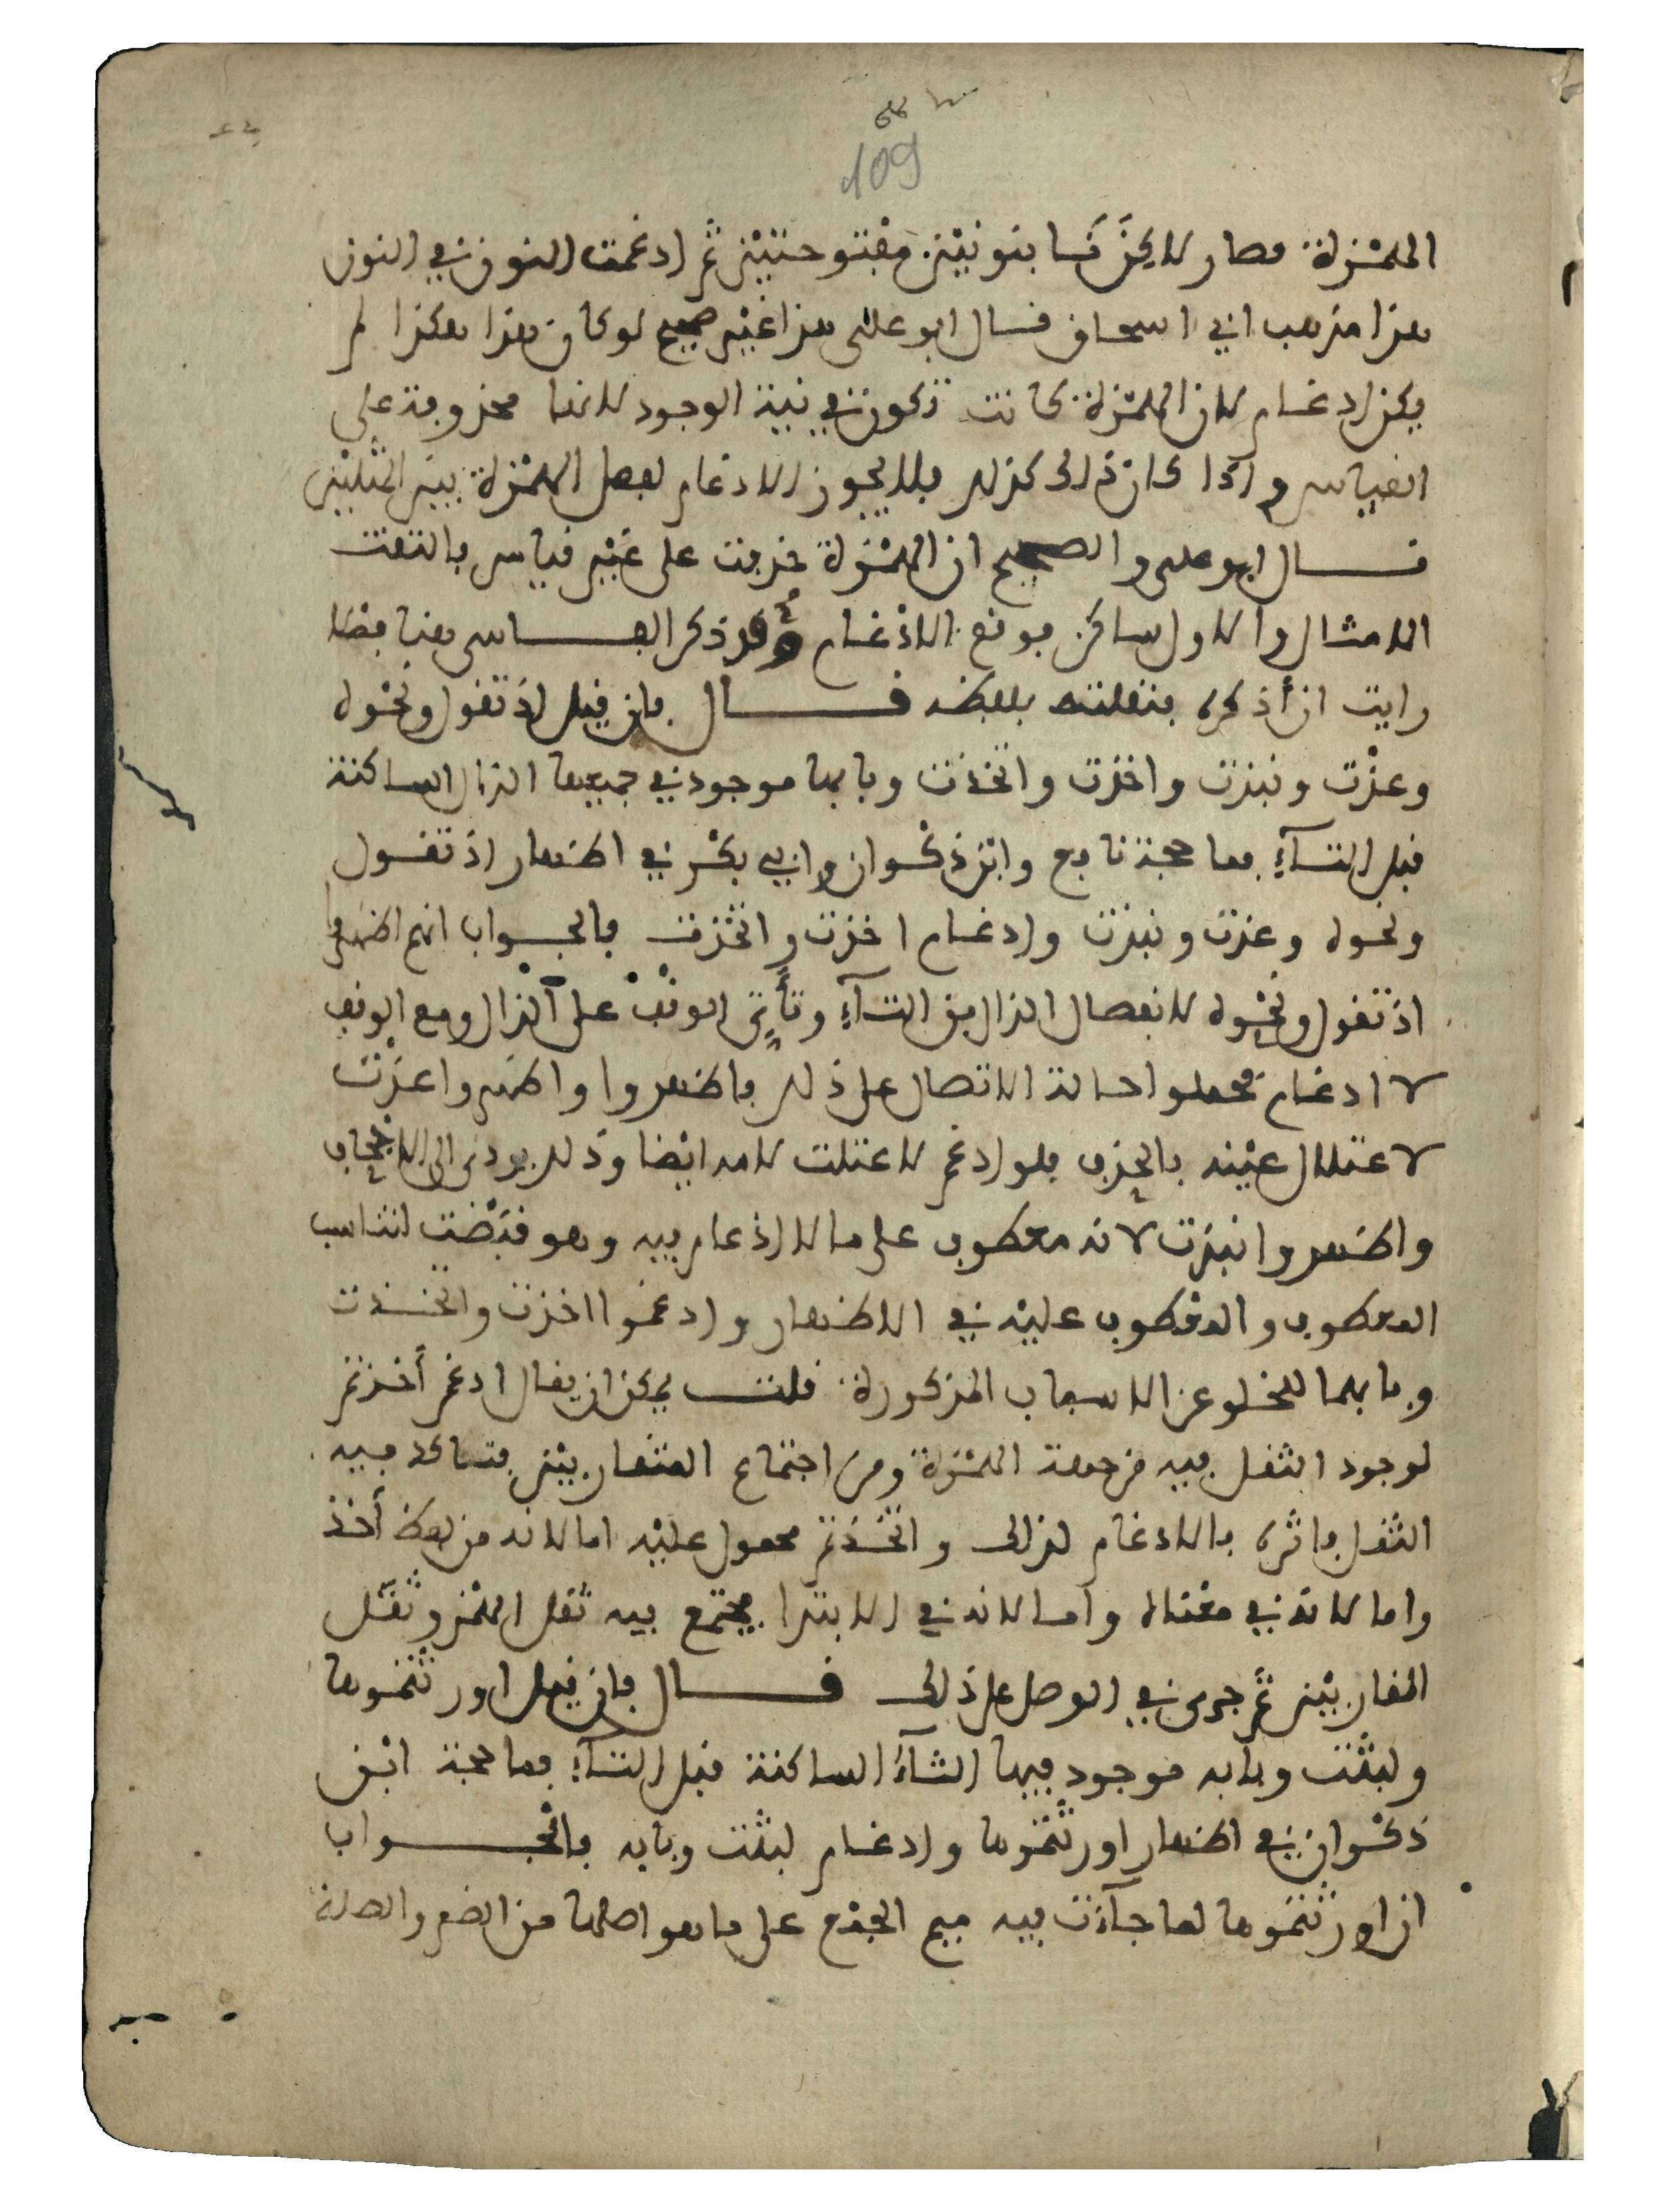 109
الهمزة فصار لاكننا بنونين مفتوحتين ثم ادغمت النون في النون
هذا مذهب ابي اسحاق قال ابو علي هذا غير صحيح لو كان هذا هكذا لم
يكن ادغام لان الهمزة كانت تكون في نية الوجود لانها محذوفة على
القياس واذا كان ذلك كذلك فلا يجوز الادغام لفصل الهمزة بين المثلين
قال ابو علي والصحيح ان الهمزة حذفت على غير قياس فالتقت
الامثال والاول ساكن فوقع الادغام وقد ذكر الفاسي هنا فصلا
رايت ان أذكره بنقلته بلفظه قال فان قيل إذ تقول ونحوه
وعذت ونبذت واخذت واتخذت وبابها موجود في جميعها الذال الساكنة
قبل التآء فما حجة نافع وابن ذكوان وابي بكر في اظهار إذ تقول
ونحوه وعذت ونبذت وادغام اخذت واتخذت فالجواب انهم اظهروا
اذ تقول ونحوه لانفصال الذال من التآء وتأتي الوقف على الذال ومع الوقف
لا ادغام فحملوا حالة الاتصال على ذلك فاظهروا واظهروا عذت
لاعتلال عينه بالحذف فلو ادغم لاعتلت لامه ايضا وذلك يودي الى الاجحاف
واظهروا نبذت لانه معطوف على ما لا ادغام فيه وهو قبضت لتناسب
المعطوف والمعطوف عليه في الاظهار وادغموا اخذت واتخذت
وبابهما للخلو عن الاسباب المذكورة قلت يمكن ان يقال ادغم أخذتم
لوجود الثقل فيه من جهة الهمزة ومن اجتماع المتقاربين فتاكد فيه
الثقل فاثره بالادغام لذلك واتخذتم محمول عليه اما لانه من لفظ أخذ
واما لانه في معناه واما لانه في الابتدا يجتمع فيه ثقل الهمز وثقل
المقاربين ثم جرى في الوصل على ذلك قال فان قيل اورثتموها
ولبثت وبابه موجود فيها الثآء الساكنة قبل التآء فما حجة ابن
ذكوان في اظهار اورثتموها وادغام لبثت وبابه فالجواب
ان اورثتموها لما جآءت فيه ميم الجمع على ما هو اصلها من الضم والصلة